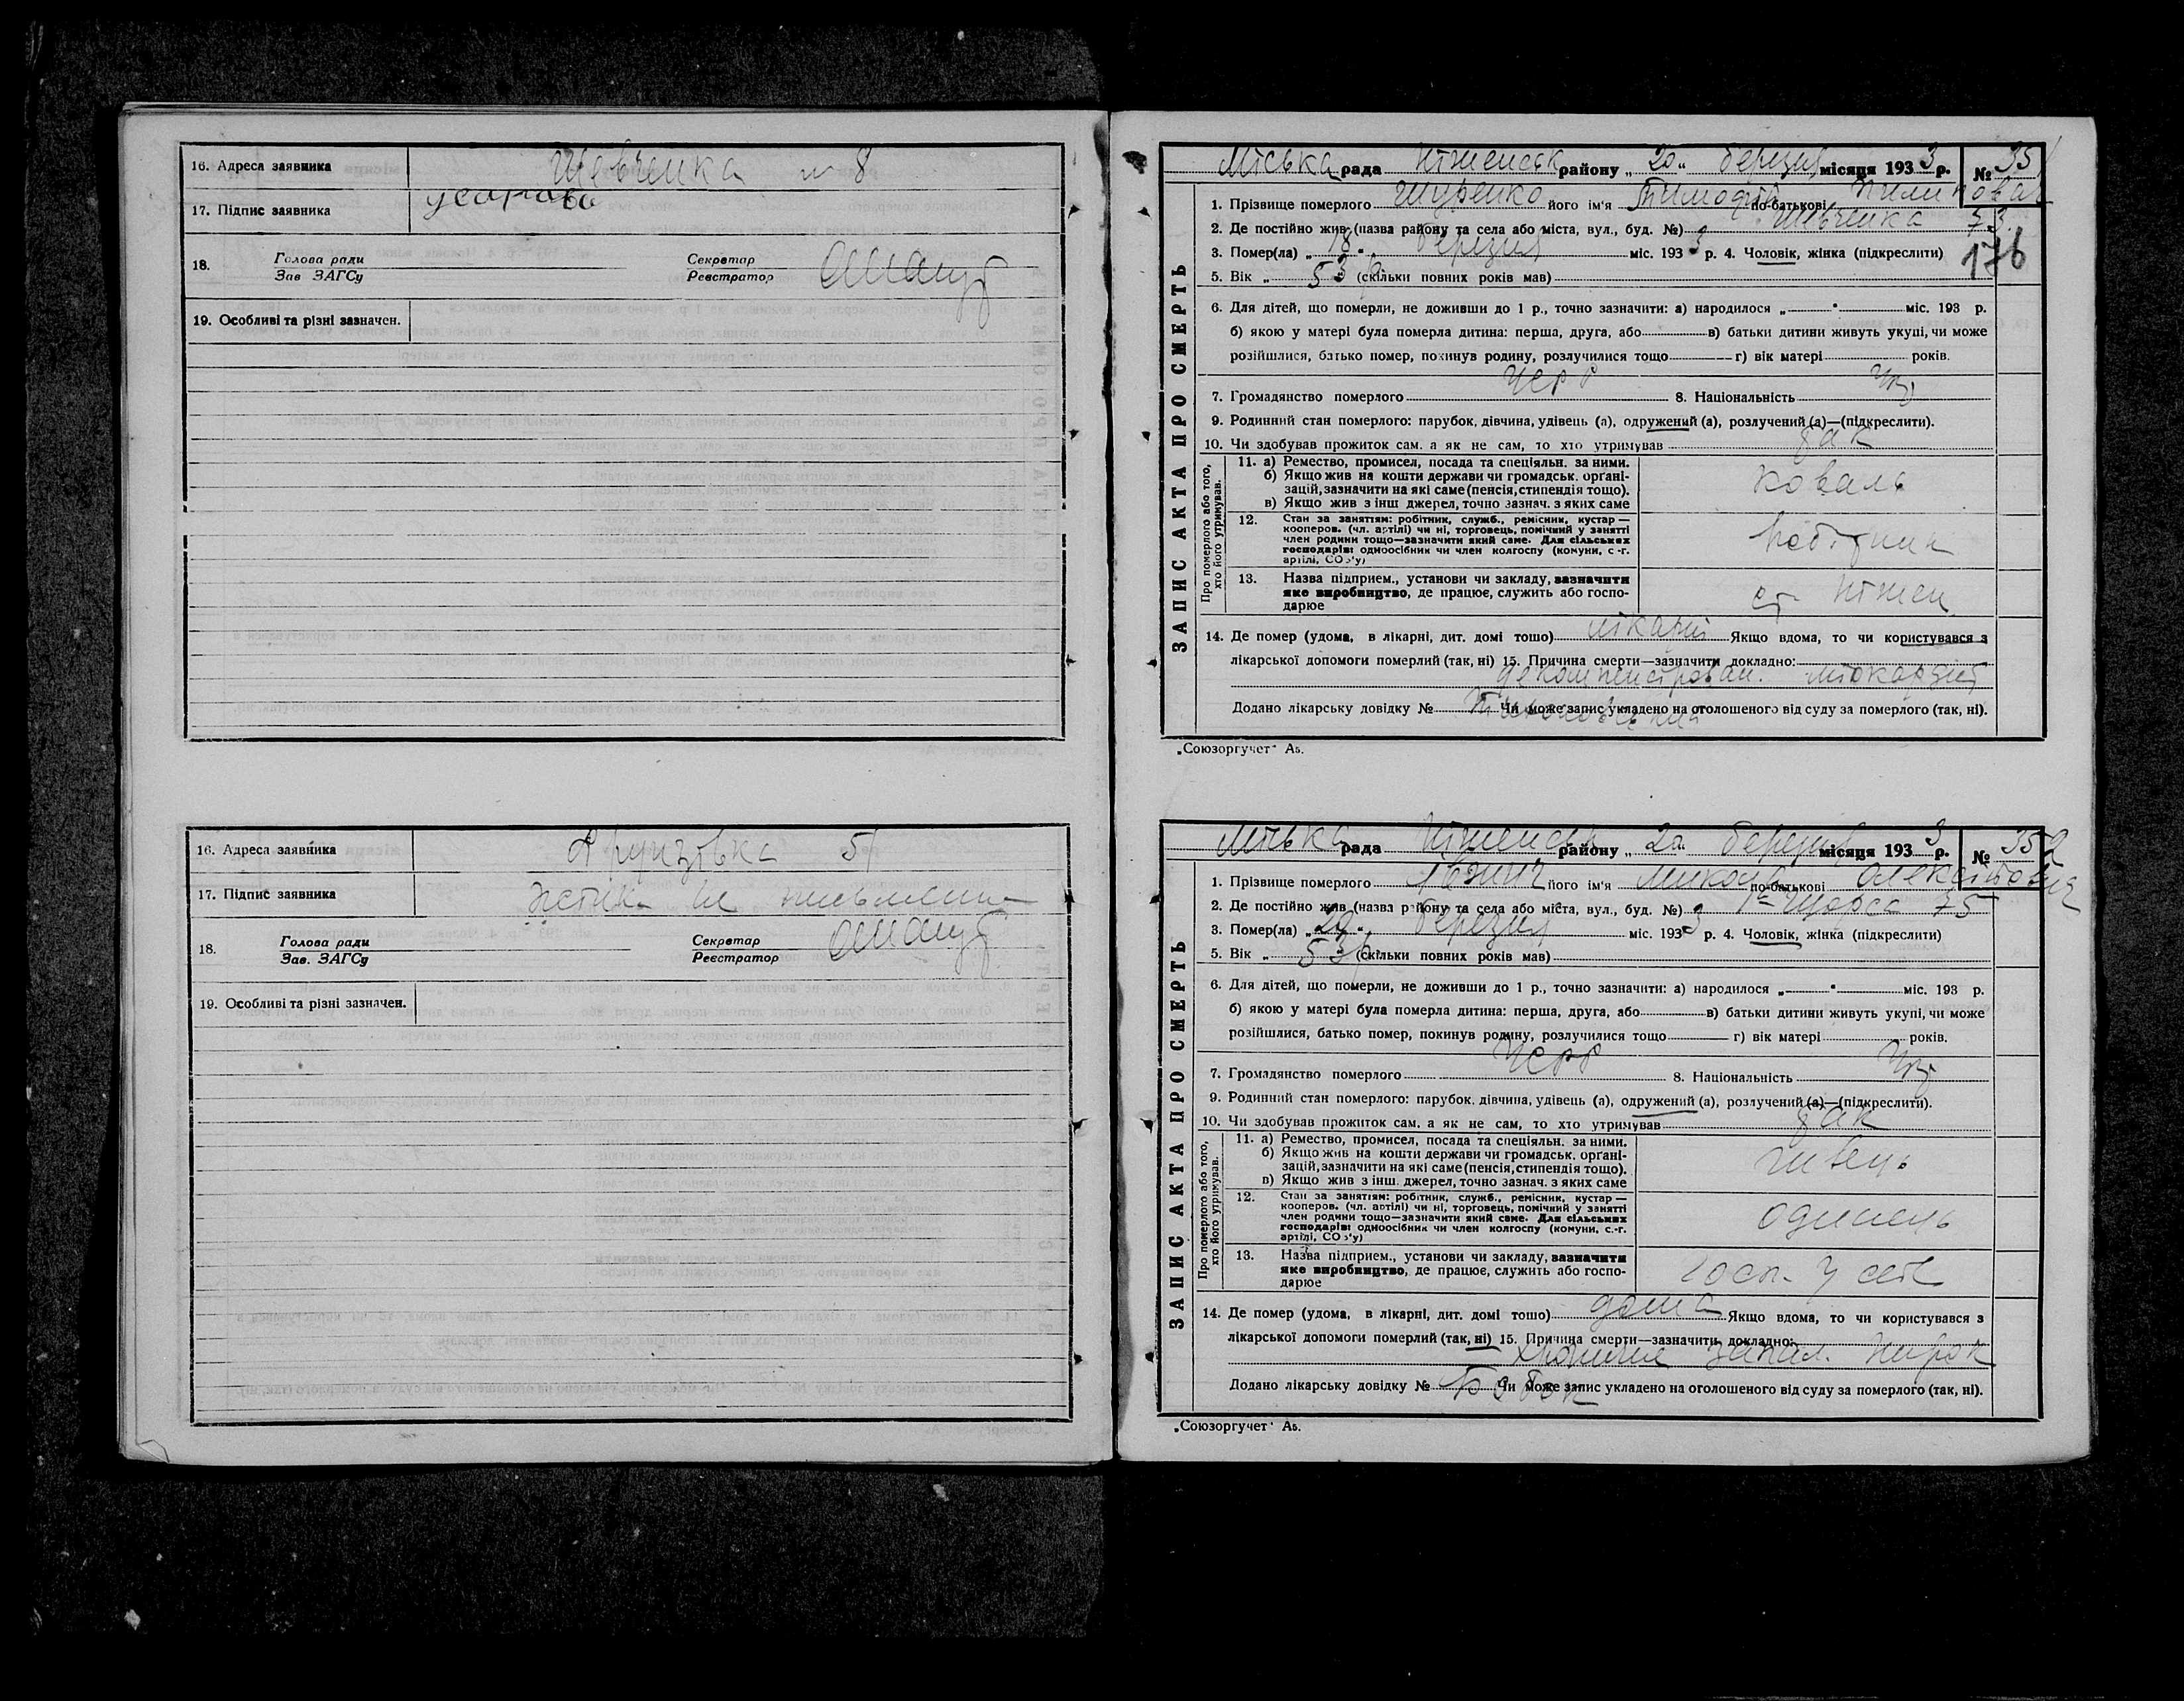 16. Адреса заявника Шевченка № 8
17. Підпис заявника
18. Голова ради Секретар
Зав ЗАГСу Реєстратор
19. Особливі та різні зазначен.
16. Адреса заявника Фрунзівка 51
17. Підпис заявника не письменна
18. Голова ради Секретар
Зав. ЗАГСу Реєстратор
19. Особливі та різні зазначен.
ЗАПИС АКТА ПРО СМЕРТЬ
Міська рада Ніженськ району „20" березня місяця 1933 р. № 351
1. Прізвище померлого його ім'я Тимофій по-батькові Пилипович
2. Де постійно жив (назва району та села або міста, вул., буд. №) Шевченка 73
3. Помер(ла) „18" березня міс. 1933 р. 4. Чоловік, жінка (підкреслити) 176
5. Вік „ 53 р. (скільки повних років мав)
6. Для дітей, що померли, не доживши до 1 р., точно зазначити: а) народилося „ " міс. 193 р.
б) якою у матері була померла дитина: перша, друга, або в) батьки дитини живуть укупі, чи може
розійшлися, батько помер, покинув родину, розлучилися тощо г) вік матері років.
7. Громадянство померлого УСРР 8. Національність Укр
9. Родинний стан померлого: парубок, дівчина, удівець (а), одружений (а), розлучений (а)—(підкреслити).
10. Чи здобував прожиток сам, а як не сам, то хто утримував так
Про померлого або того, хто його утримував.
11. а) Ремество, промисел, посада та спеціяльн. за ними.
б) Якщо жив на кошти держави чи громадськ. орґані-
зацій, зазначити на які саме (пенсія, стипендія тощо).
в) Якщо жив з інш джерел, точно зазнач. з яких саме
коваль
12. Стан за заняттям: робітник, служб., ремісник, кустар —
кооперов. (чл. артілі) чи ні, торговець, помічний у занятті
член родини тощо—зазначити який саме. Для сільських
господарів: одноосібник чи член колгоспу (комуни, с.-г.
артілі, СОЗ'у)
робітник
13. Назва підприєм., установи чи закладу, зазначити
яке виробництво, де працює, служить або госпо-
дарює
ст. Ніжен
14. Де помер (удома, в лікарні, дит. домі тощо) лікарні Якщо вдома, то чи користувався з
лікарської допомоги померлий (так, ні) 15. Причина смерти—зазначити докладно:
декомпенсірован. міокардит
Додано лікарську довідку № Чи може запис укладено на оголошеного від суду за померлого (так, ні).
„Союзоргучет" Ав.
ЗАПИС АКТА ПРО СМЕРТЬ
Міська рада Ніженськ району „20" березня місяця 1933 р. № 352
1. Прізвище померлого його ім'я Микола по-батькові Олексійович
2. Де постійно жив (назва району та села або міста, вул., буд. №) Щорса 75
3. Помер(ла) „20" березня міс. 1933 р. 4. Чоловік, жінка (підкреслити)
5. Вік „ 53 р. (скільки повних років мав)
6. Для дітей, що померли, не доживши до 1 р., точно зазначити: а) народилося „ " міс. 193 р.
б) якою у матері була померла дитина: перша, друга, або в) батьки дитини живуть укупі, чи може
розійшлися, батько помер, покинув родину, розлучилися тощо г) вік матері років.
7. Громадянство померлого УСРР 8. Національність Укр
9. Родинний стан померлого: парубок, дівчина, удівець (а), одружений (а), розлучений (а)—(підкреслити).
10. Чи здобував прожиток сам, а як не сам, то хто утримував так
Про померлого або того, хто його утримував.
11. а) Ремество, промисел, посада та спеціяльн. за ними.
б) Якщо жив на кошти держави чи громадськ. орґані-
зацій, зазначити на які саме (пенсія, стипендія тощо).
в) Якщо жив з інш. джерел, точно зазнач. з яких саме
швець
12. Стан за заняттям: робітник, служб., ремісник, кустар —
кооперов. (чл. артілі) чи ні, торговець, помічний у занятті
член родини тощо—зазначити який саме. Для сільських
господарів: одноосібник чи член колгоспу (комуни, с.-г.
артілі, СОЗ'у)
одинець
13. Назва підприєм., установи чи закладу, зазначити
яке виробництво, де працює, служить або госпо-
дарює
госп. у себе
14. Де помер (удома, в лікарні, дит. домі тощо) дома Якщо вдома, то чи користувався з
лікарської допомоги померлий (так, ні) 15. Причина смерти—зазначити докладно:
хроничне запал. нирок
Додано лікарську довідку № Чи може запис укладено на оголошеного від суду за померлого (так, ні).
„Союзоргучет" Ав.